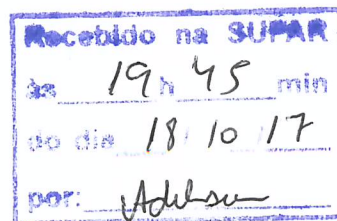 Recebido na SUPAR
às 19 h 45 min
do dia 18/10/17
por: Adelson